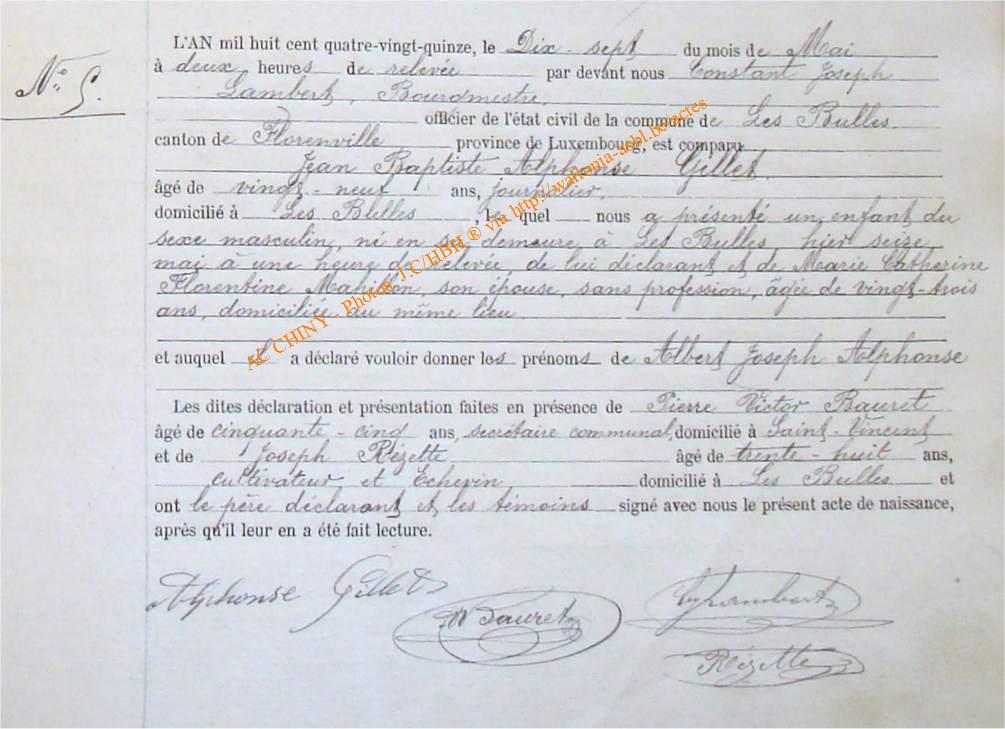 N° 5.
L'AN mil huit cent quatre-vingt-quinze, le Dix-sept du mois de Mai
à deux heures de relevée par devant nous Constant Joseph
Lambert, Bourgmestre,
officier de l'état civil de la commune de Les Bulles
canton de Florenville province de Luxembourg, est comparu
Jean Baptiste Alphonse Gillet
âgé de vingt-neuf ans, journalier,
domicilié à Les Bulles, le quel nous a présenté un enfant du
sexe masculin, né en sa demeure à Les Bulles, hier seize
mai à une heure de relevée, de lui déclarant et de Marie Catherine
Florentine Mahillon, son épouse, sans profession, âgée de vingt-trois
ans, domiciliée au même lieu
et auquel il a déclaré vouloir donner les prénoms de Albert Joseph Alphonse
Les dites déclaration et présentation faites en présence de Pierre Victor Bauret
âgé de cinquante-cinq ans, secrétaire communal, domicilié à Saint-Vincent
et de Joseph Rézette âgé de trente-huit ans,
cultivateur et Echevin, domicilié à Les Bulles et
ont le père déclarant et les témoins signé avec nous le présent acte de naissance,
après qu'il leur en a été fait lecture.
Alphonse Gillet
Bauret
Lambert
Rézette
AC CHINY - Photos J.C/HBH ® via http://wallonia-asbl.be/actes